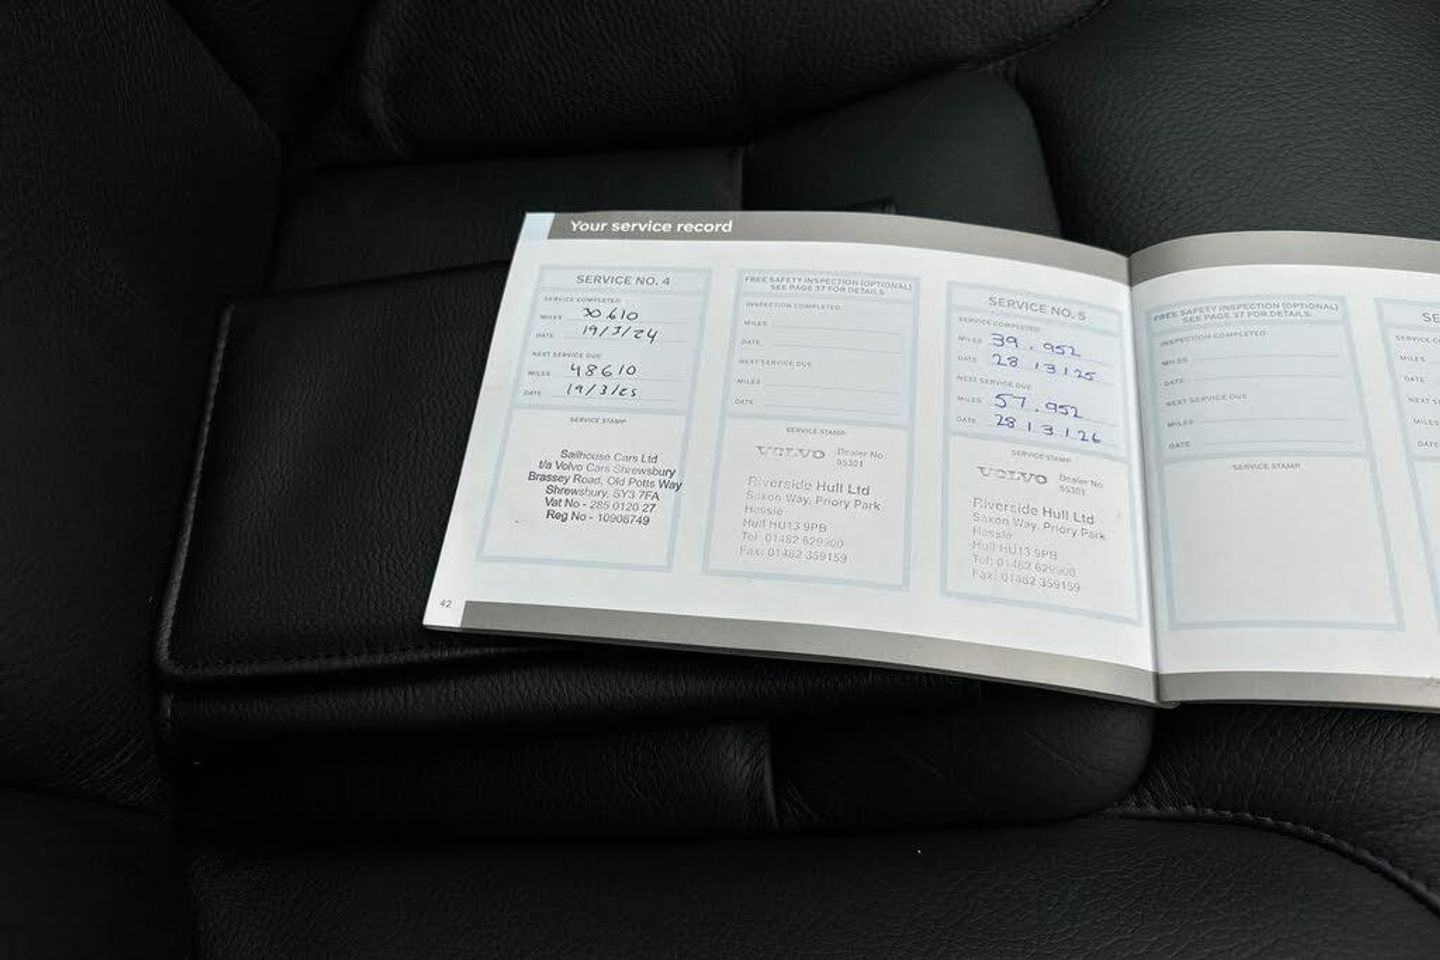 Your service record
SERVICE NO. 4
SERVICE COMPLETED:
MILES 30610
DATE 19/3/24
NEXT SERVICE DUE
MILES 48610
DATE 19/3/25
SERVICE STAMP
Sailhouse Cars Ltd
t/a Volvo Cars Shrewsbury
Brassey Road, Old Potts Way
Shrewsbury, SY3 7FA
Vat No - 285 0120 27
Reg No - 10908749
42
FREE SAFETY INSPECTION (OPTIONAL)
SEE PAGE 37 FOR DETAILS
INSPECTION COMPLETED:
MILES
DATE
NEXT SERVICE DUE
MILES
DATE
SERVICE STAMP
VOLVO Dealer No
55301
Riverside Hull Ltd
Saxon Way, Priory Park
Hessle
Hull HU13 9PB
Tel: 01482 629900
Fax: 01482 359159
SERVICE NO. 5
SERVICE COMPLETED:
MILES 39.952
DATE 28/3/25
NEXT SERVICE DUE
MILES 57.952
DATE 28/3/26
SERVICE STAMP
VOLVO Dealer No
55301
Riverside Hull Ltd
Saxon Way, Priory Park
Hessle
Hull HU13 9PB
Tel: 01482 629900
Fax: 01482 359159
FREE SAFETY INSPECTION (OPTIONAL)
SEE PAGE 37 FOR DETAILS
INSPECTION COMPLETED:
MILES
DATE
NEXT SERVICE DUE
MILES
DATE
SERVICE STAMP
MILES
DATE
MILES
DATE